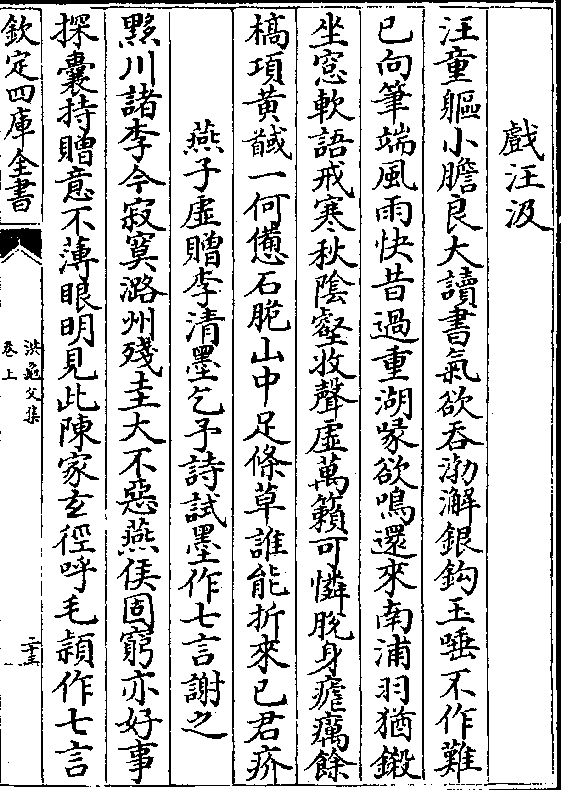 戲汪汲
汪童軀小膽良大讀書氣欲吞渤澥銀鈎玉唾不作難
已向筆端風雨快昔過重湖㖮欲鳴還來南浦羽猶鎩
坐窓軟語戒寒秋陰壑收聲虛萬籟可憐脫身瘧癘餘
槁項黄馘一何憊石脆山中足條草誰能折來已君疥
燕子虛贈李清墨乞予詩試墨作七言謝之
黟川諸李今寂寞潞州殘圭大不惡燕侯固窮亦好事
探囊持贈意不薄眼明見此陳家玄徑呼毛頴作七言
欽定四庫全書
洪龜父集
卷上
二十三